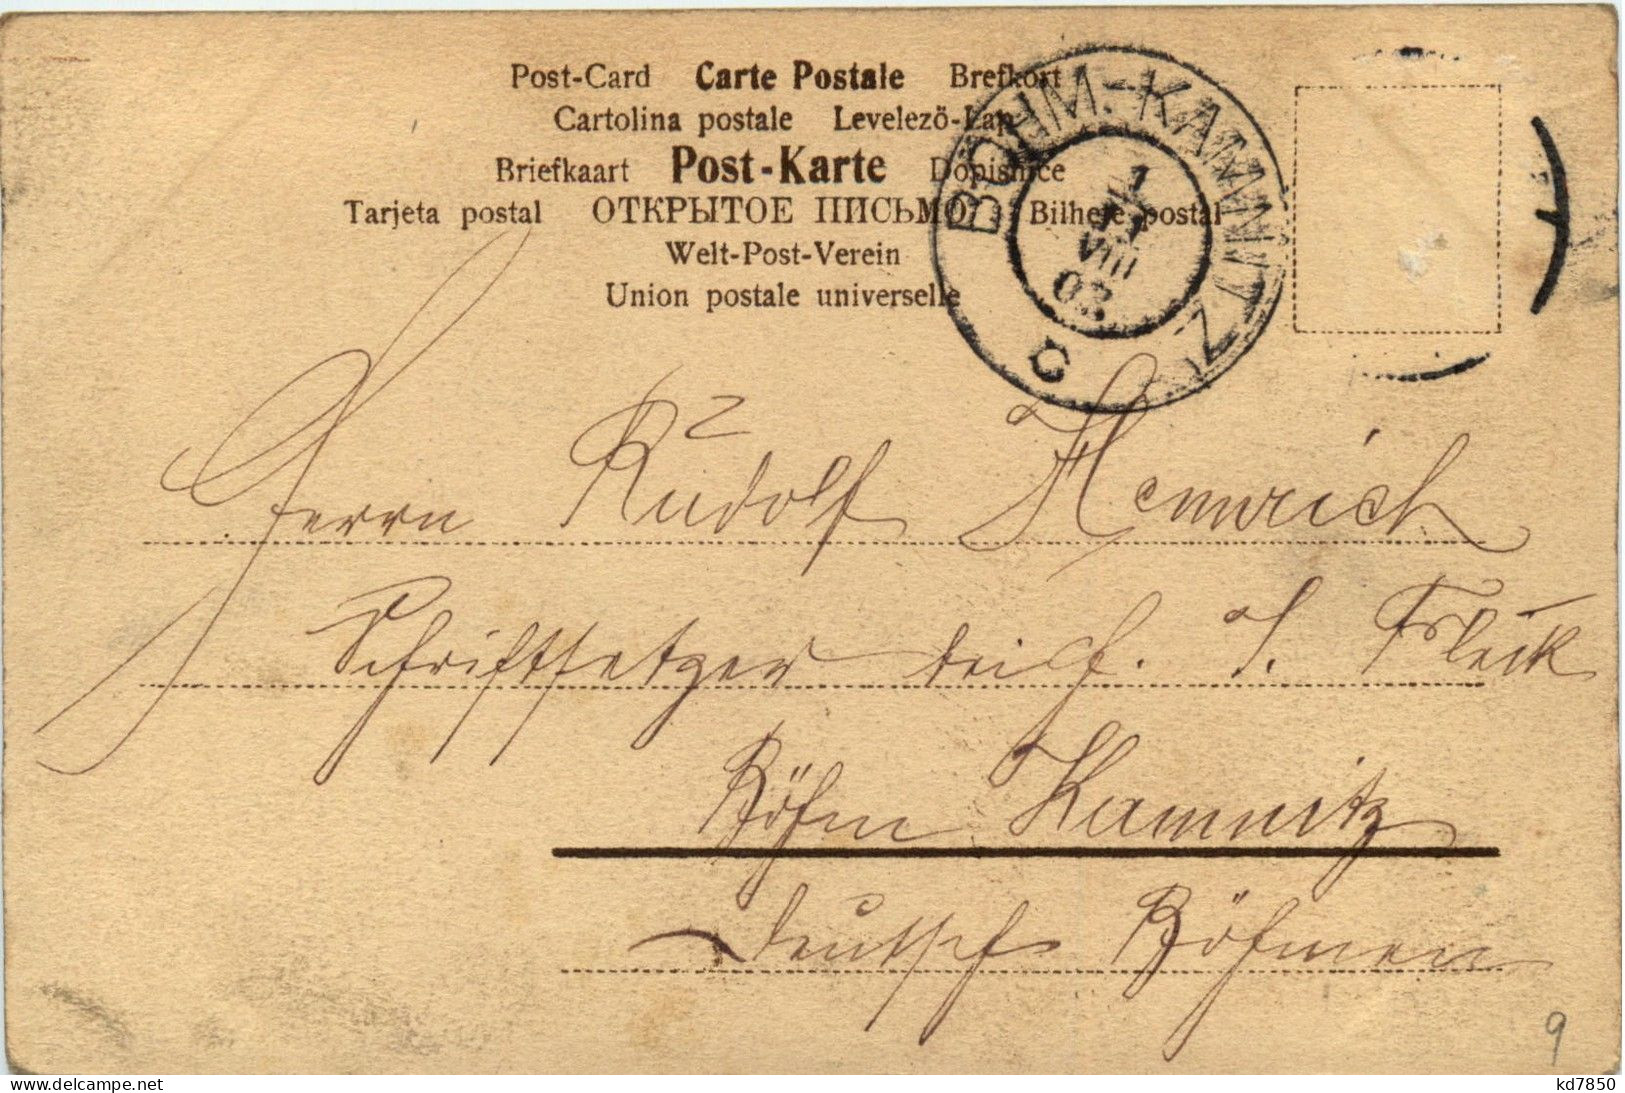 Post-Card Carte Postale Brefkort
Cartolina postale Levelezö-Lap
Briefkaart Post-Karte Dopisnice
Tarjeta postal ОТКРЫТОЕ ПИСЬМО. Bilhete postal
Welt-Post-Verein
Union postale universelle
BÖHM.-KAMNITZ
VIII
c
Herrn Rudolf Hennrich
Schriftsetzer bei H. J. Fleck
Böhm Kamnitz
deutsch Böhmen
9
kd7850